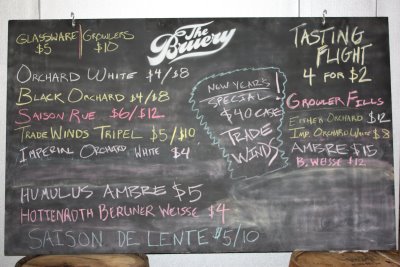 GLASSWARE GROWLERS
$5 $10
The
Bruery
ORCHARD WHITE $4/$8
BLACK ORCHARD $4/$8
SAISON RUE $6/$12
TRADE WINDS TRIPEL $5/$10
IMPERIAL ORCHARD WHITE $4
HUMULUS AMBRE $5
HOTTENROTH BERLINER WEISSE $4
SAISON DE LENTE $5/10
NEW YEAR'S
SPECIAL!
$40 CASE
TRADE
WINDS
TASTING
FLIGHT
4 FOR $2
GROWLER FILLS
EITHER ORCHARD $12
IMP. ORCHARD WHITE $8
AMBRE $15
B. WEISSE $12